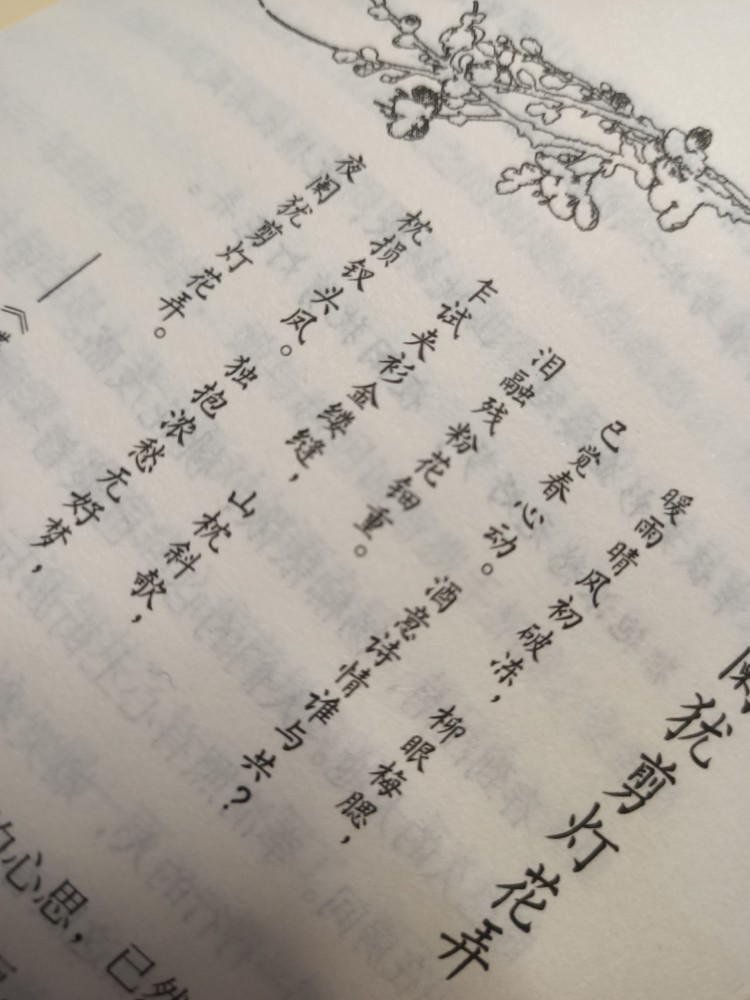 阑犹剪灯花弄
暖雨晴风初破冻，柳眼梅腮，
已觉春心动。酒意诗情谁与共？
泪融残粉花钿重。
乍试夹衫金缕缝，山枕斜欹，
枕损钗头凤。独抱浓愁无好梦，
夜阑犹剪灯花弄。
——《
的心思，已然